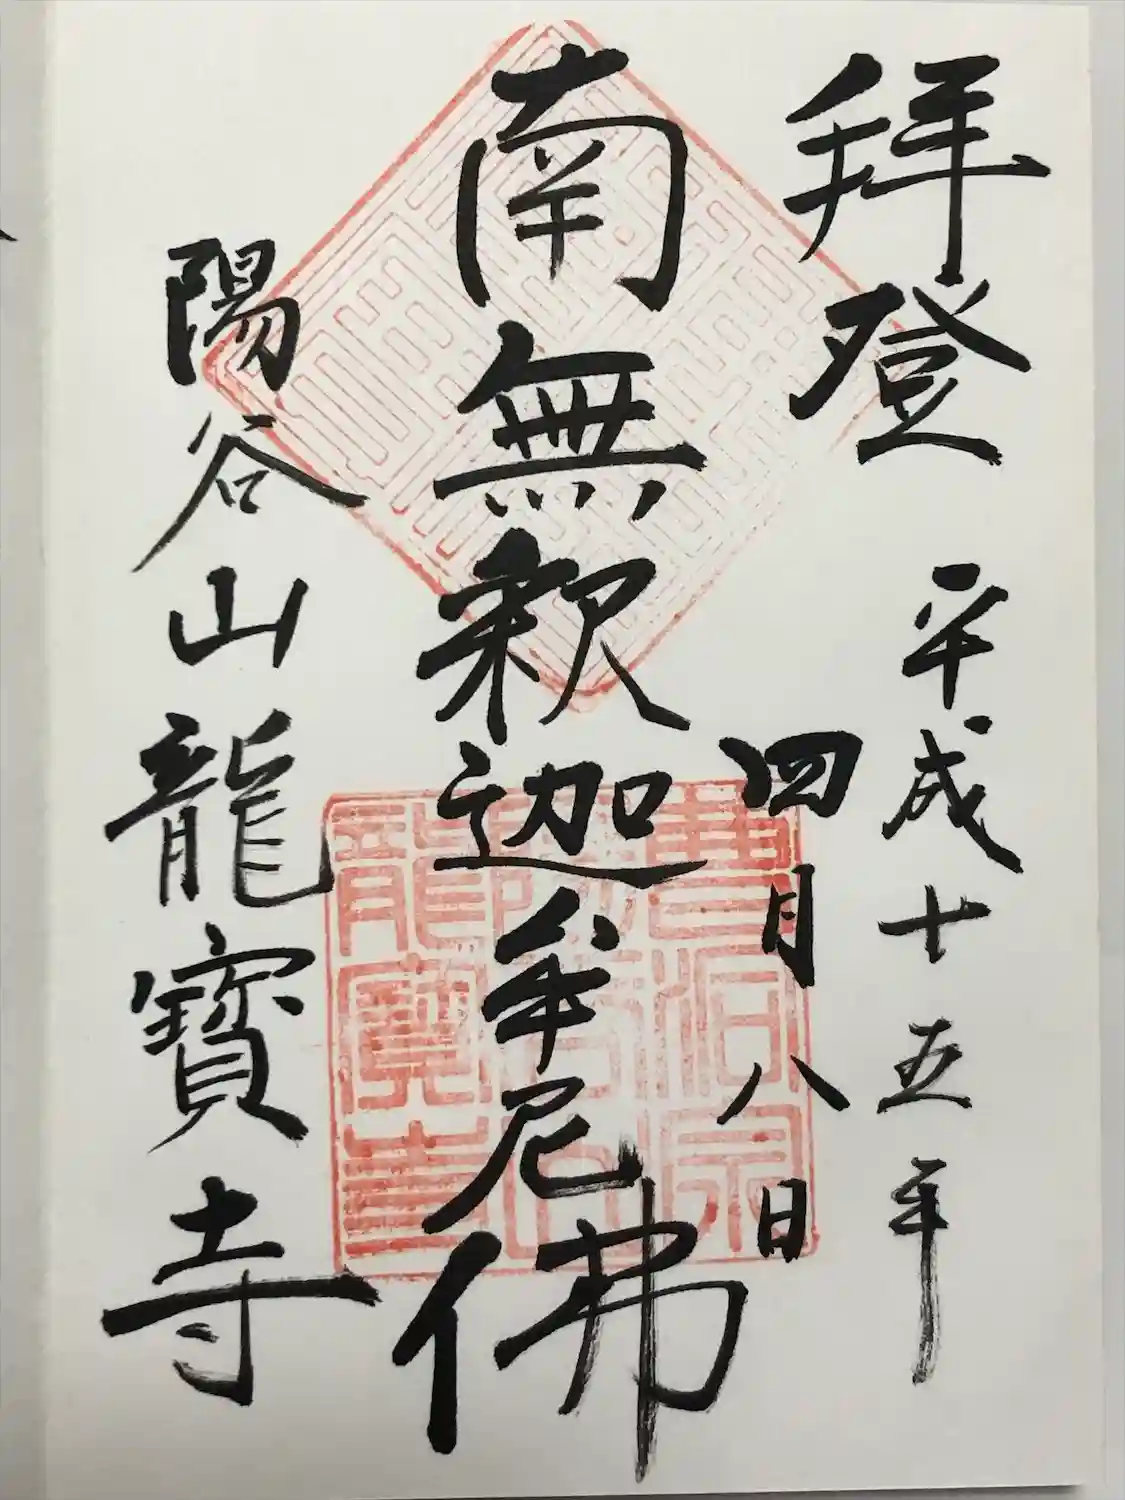 拜登
平成十五年
四月八日
南無釈迦牟尼佛
陽谷山龍寶寺